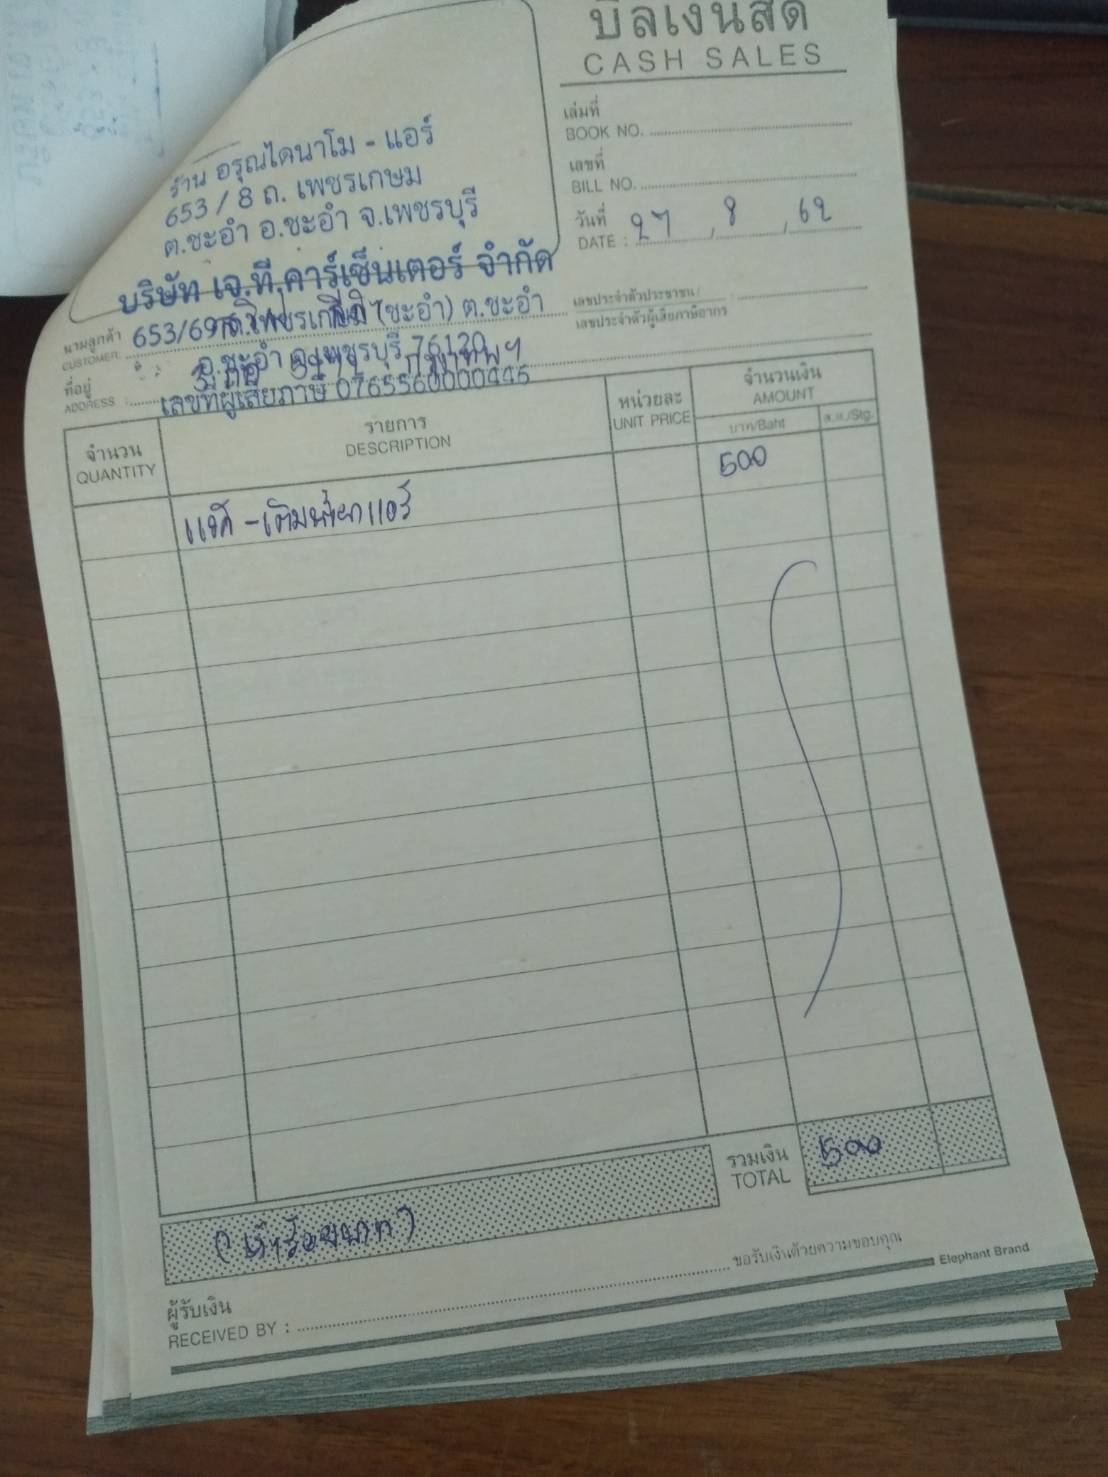 บิลเงินสด
CASH SALES
เล่มที่
BOOK NO.
เลขที่
BILL NO.
วันที่
DATE : 27 , 8 , 62
ร้าน อรุณไดนาโม - แอร์
653 / 8 ถ. เพชรเกษม
ต.ชะอำ อ.ชะอำ จ.เพชรบุรี
บริษัท เจ.ที.คาร์เซ็นเตอร์ จำกัด
นามลูกค้า
CUSTOMER:
653/69 ถ.เพชรเกษม (ชะอำ) ต.ชะอำ
เลขประจำตัวประชาชน/ :
เลขประจำตัวผู้เสียภาษีอากร
ที่อยู่
ADDRESS :
อ.ชะอำ จ.เพชรบุรี 76120
เลขที่ผู้เสียภาษี 0765560000445
จำนวน
QUANTITY
รายการ
DESCRIPTION
หน่วยละ
UNIT PRICE
จำนวนเงิน
AMOUNT
บาท/Baht
ส.ต./Stg.
เช็ค - เติมน้ำยาแอร์
500
รวมเงิน
TOTAL
500
(ห้าร้อยบาท)
ขอรับเงินด้วยความขอบคุณ
ผู้รับเงิน
RECEIVED BY :
Elephant Brand